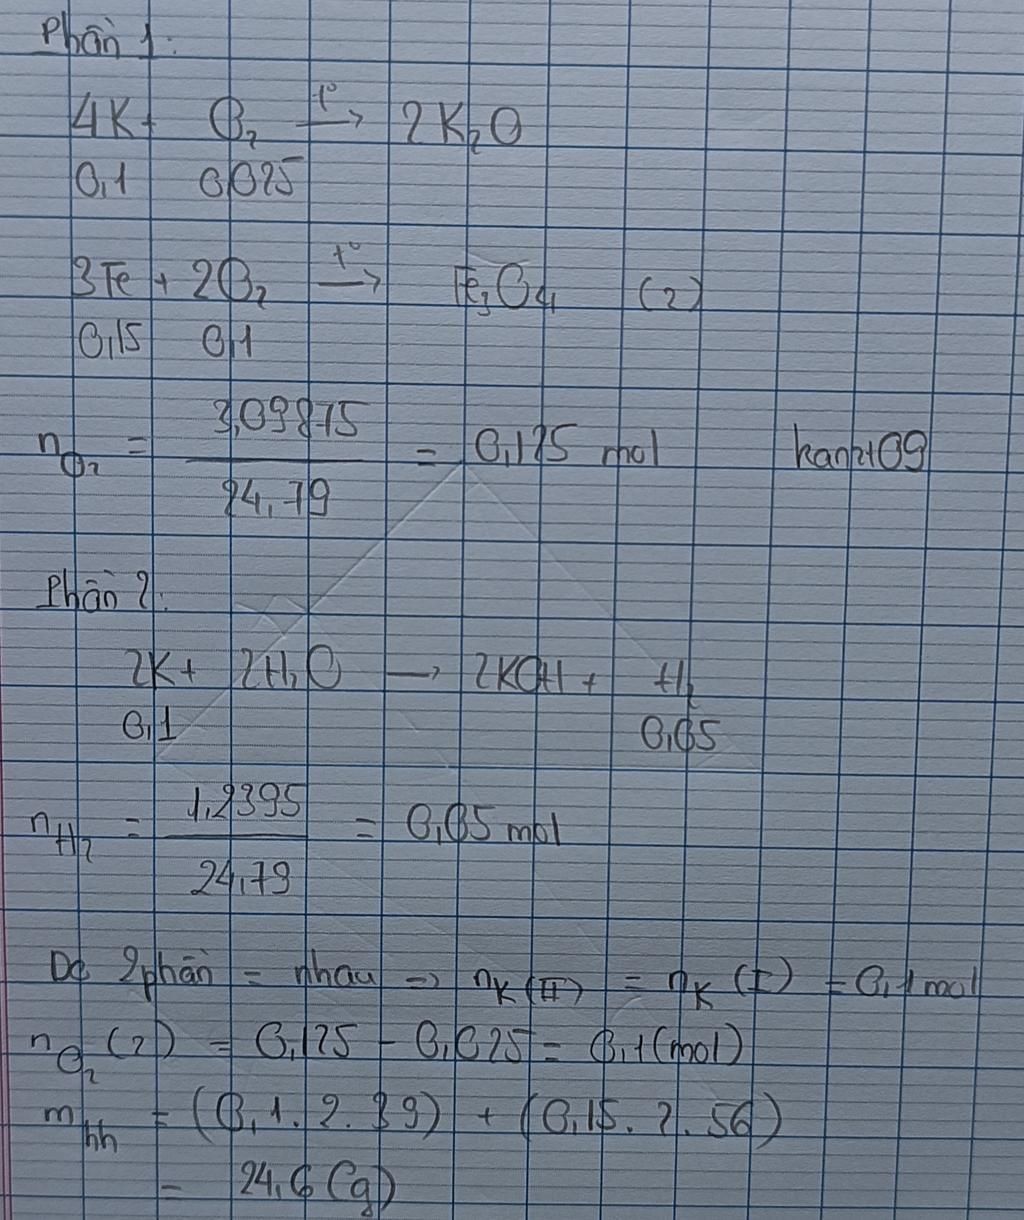 Phần 1:
4K + O₂ —t°→ 2K₂O
0,1 0,025
3Fe + 2O₂ —t°→ Fe₃O₄ (2)
0,15 0,1
n_O₂ = 3,09875 / 24,79 = 0,125 mol kanzt09
Phần 2:
2K + 2H₂O → 2KOH + H₂
0,1 0,05
n_H₂ = 1,2395 / 24,79 = 0,05 mol
Do 2 phần = nhau => n_K (II) = n_K (I) = 0,1 mol
n_O₂ (2) = 0,125 - 0,025 = 0,1 (mol)
m_hh = (0,1.2.39) + (0,15.2.56)
= 24,6 (g)